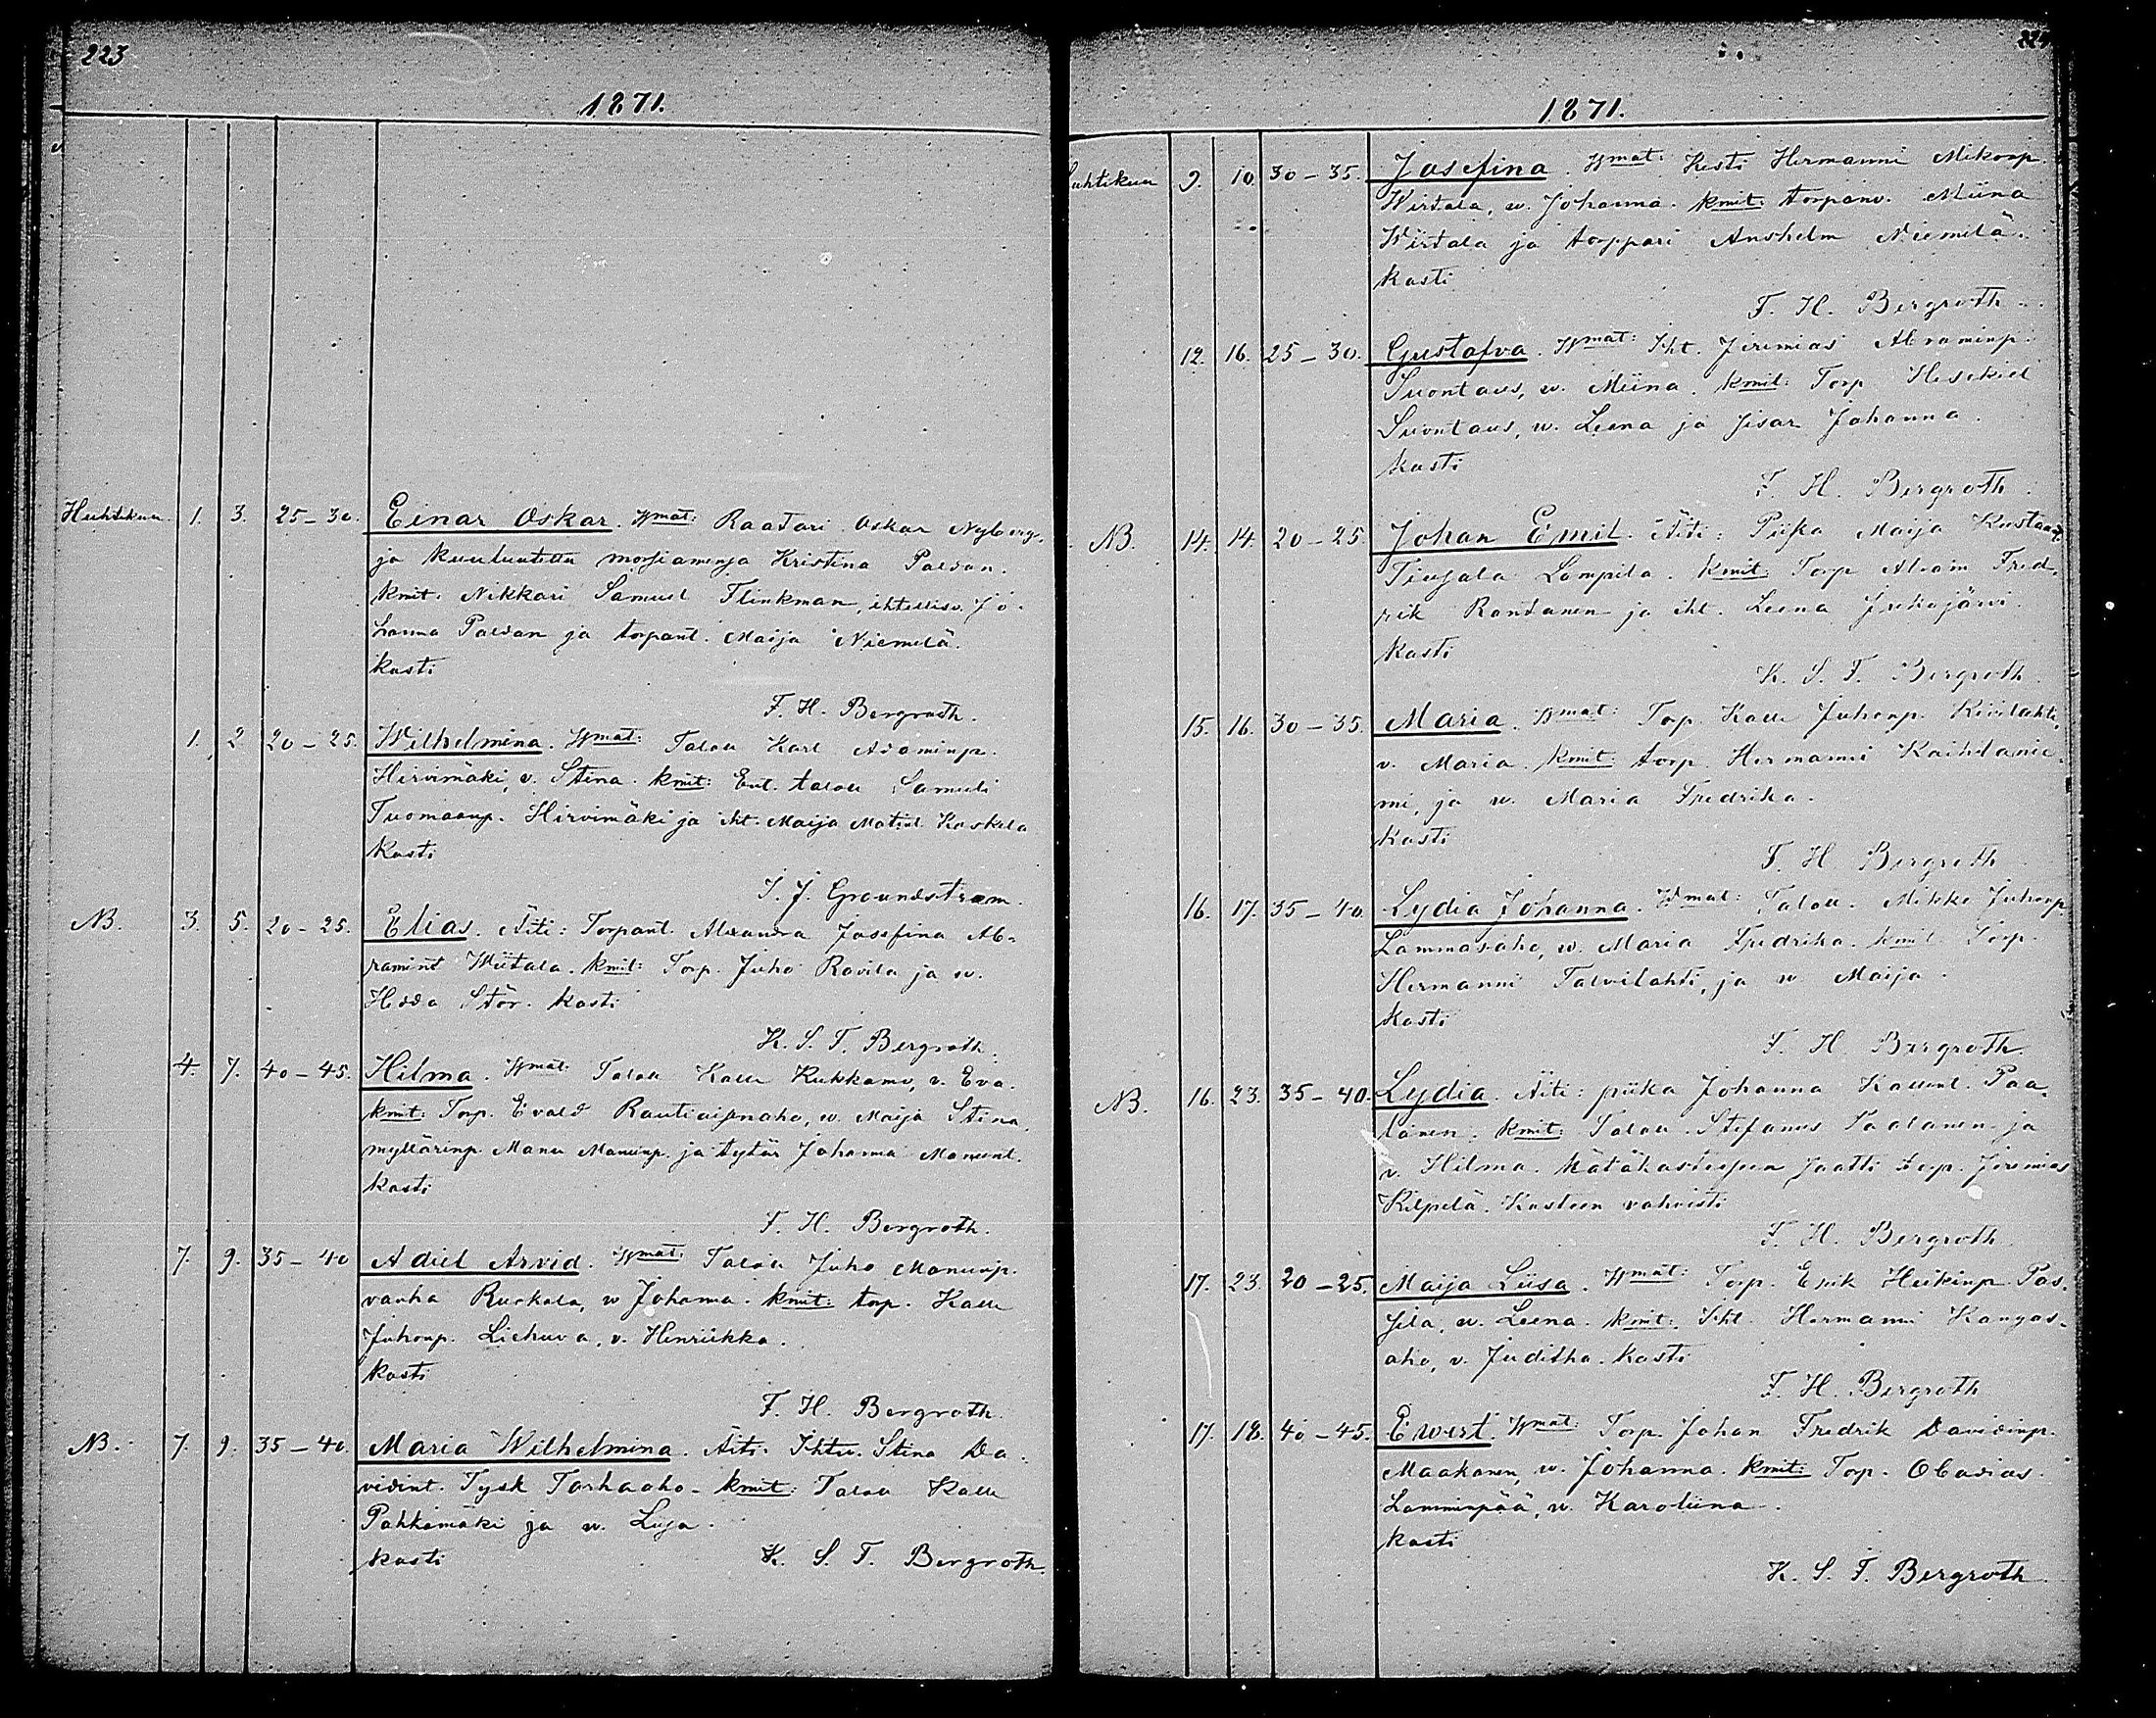 223
1871.
Huhtikuu. 1. 3. 25-30. Einar Oskar. Wmat: Raatari Oskar Nyberg,
ja kuulutettu morsiamensa Kristina Paldan.
kmit: Nikkari Samuel Flinkman, ihtellisv. Jo-
hanna Paldan ja torpant. Maija Niemelä.
kasti
F. H. Bergroth.
1. 2 20-25. Wilhelmina. Wmat: Talou Karl Adaminp.
Hirvimäki, v. Stina. kmit: Ent. talou Samueli
Tuomaanp. Hirvimäki ja iht. Maija Matint. Koskela
Kasti
I. J. Groundstroem.
NB. 3. 5. 20-25. Elias. Äiti: Torpant. Alexandra Josefina Ab-
ramint Wiitala. kmit: Torp. Juho Ravila ja w.
Hedda Stör. kasti
K. S. T. Bergroth.
4. 7. 40-45. Hilma. Wmat: Talou Kalle Kukkamo, v. Eva.
kmit: Torp. Evald Rautiaisnaho, w. Maija Stina,
myllärinp. Manu Manunp. ja tytär Johanna Manunt.
kasti
F. H. Bergroth.
7. 9. 35-40 Adiel Arvid. Wmat: Talou Juho Manunp.
vanha Ruokala, w Johanna. kmit: torp. Kalle
Juhonp. Liehuva, v. Henriikka.
kasti
F. H. Bergroth.
NB. 7. 9. 35-40. Maria Wilhelmina. Äiti: Ihtu. Stina Da-
vidint. Tysk Tarhaaho- kmit: Talou Kalle
Pahkamäki ja w. Liisa.
kasti K. S. T. Bergroth.
224
1871.
Huhtikuu 9. 10. 30-35. Josefina. Wmat: Kesti Hermanni Mikonp.
Wirtala, w. Johanna. kmit: torpanv. Miina
Wiitala ja torppari Anshelm Niemelä.
kasti
F. H. Bergroth.
12. 16. 25-30. Gustafva. Wmat: Iht. Jeremias Abraminp.
Suontaus, w. Miina. kmit: Torp Hesekiel
Suontaus, w. Leena ja sisar Johanna.
kasti
F. H. Bergroth.
NB. 14. 14. 20-25. Johan Emil. Äiti: Piika Maija Kustaant.
Tiusala Lampila. kmit: Torp Abram Fred-
rik Rantanen ja iht. Leena Jukojärvi.
kasti
K. S. T. Bergroth.
15. 16. 30-35. Maria. Wmat: Torp. Kalle Juhonp. Kiviluhti,
v. Maria. kmit: torp. Hermanni Kaihdanie-
mi, ja w. Maria Fredrika.
kasti
F. H. Bergroth
16. 17. 35-40. Lydia Johanna. Wmat: Talou. Mikko Juhonp.
Lammasaho, w. Maria Fredrika. kmit Torp.
Hermanni Talvilahti, ja w Maija.
kasti
F. H. Bergroth.
NB. 16. 23. 35-40. Lydia. Äiti: piika Johanna Kallent. Paa-
lanen. kmit: Talou. Stefanus Taalanen ja
v. Hilma. Hätäkasteeseen saatti torp. Jeremias
Kilpelä. Kasteen vahvisti
F. H. Bergroth
17. 23. 20-25. Maija Liisa. Wmat: Torp. Erik Heikinp Pos-
sila, w. Leena. kmit: Iht. Hermanni Kangas-
aho, v. Juditha. Kasti
F. H. Bergroth
17. 18. 40-45. Ewert. Wmat: Torp. Johan Fredrik Davidinp.
Maakanen, w. Johanna. kmit: Torp. Obadias
Lamminpää, w. Karoliina.
kasti
K. S. T. Bergroth.